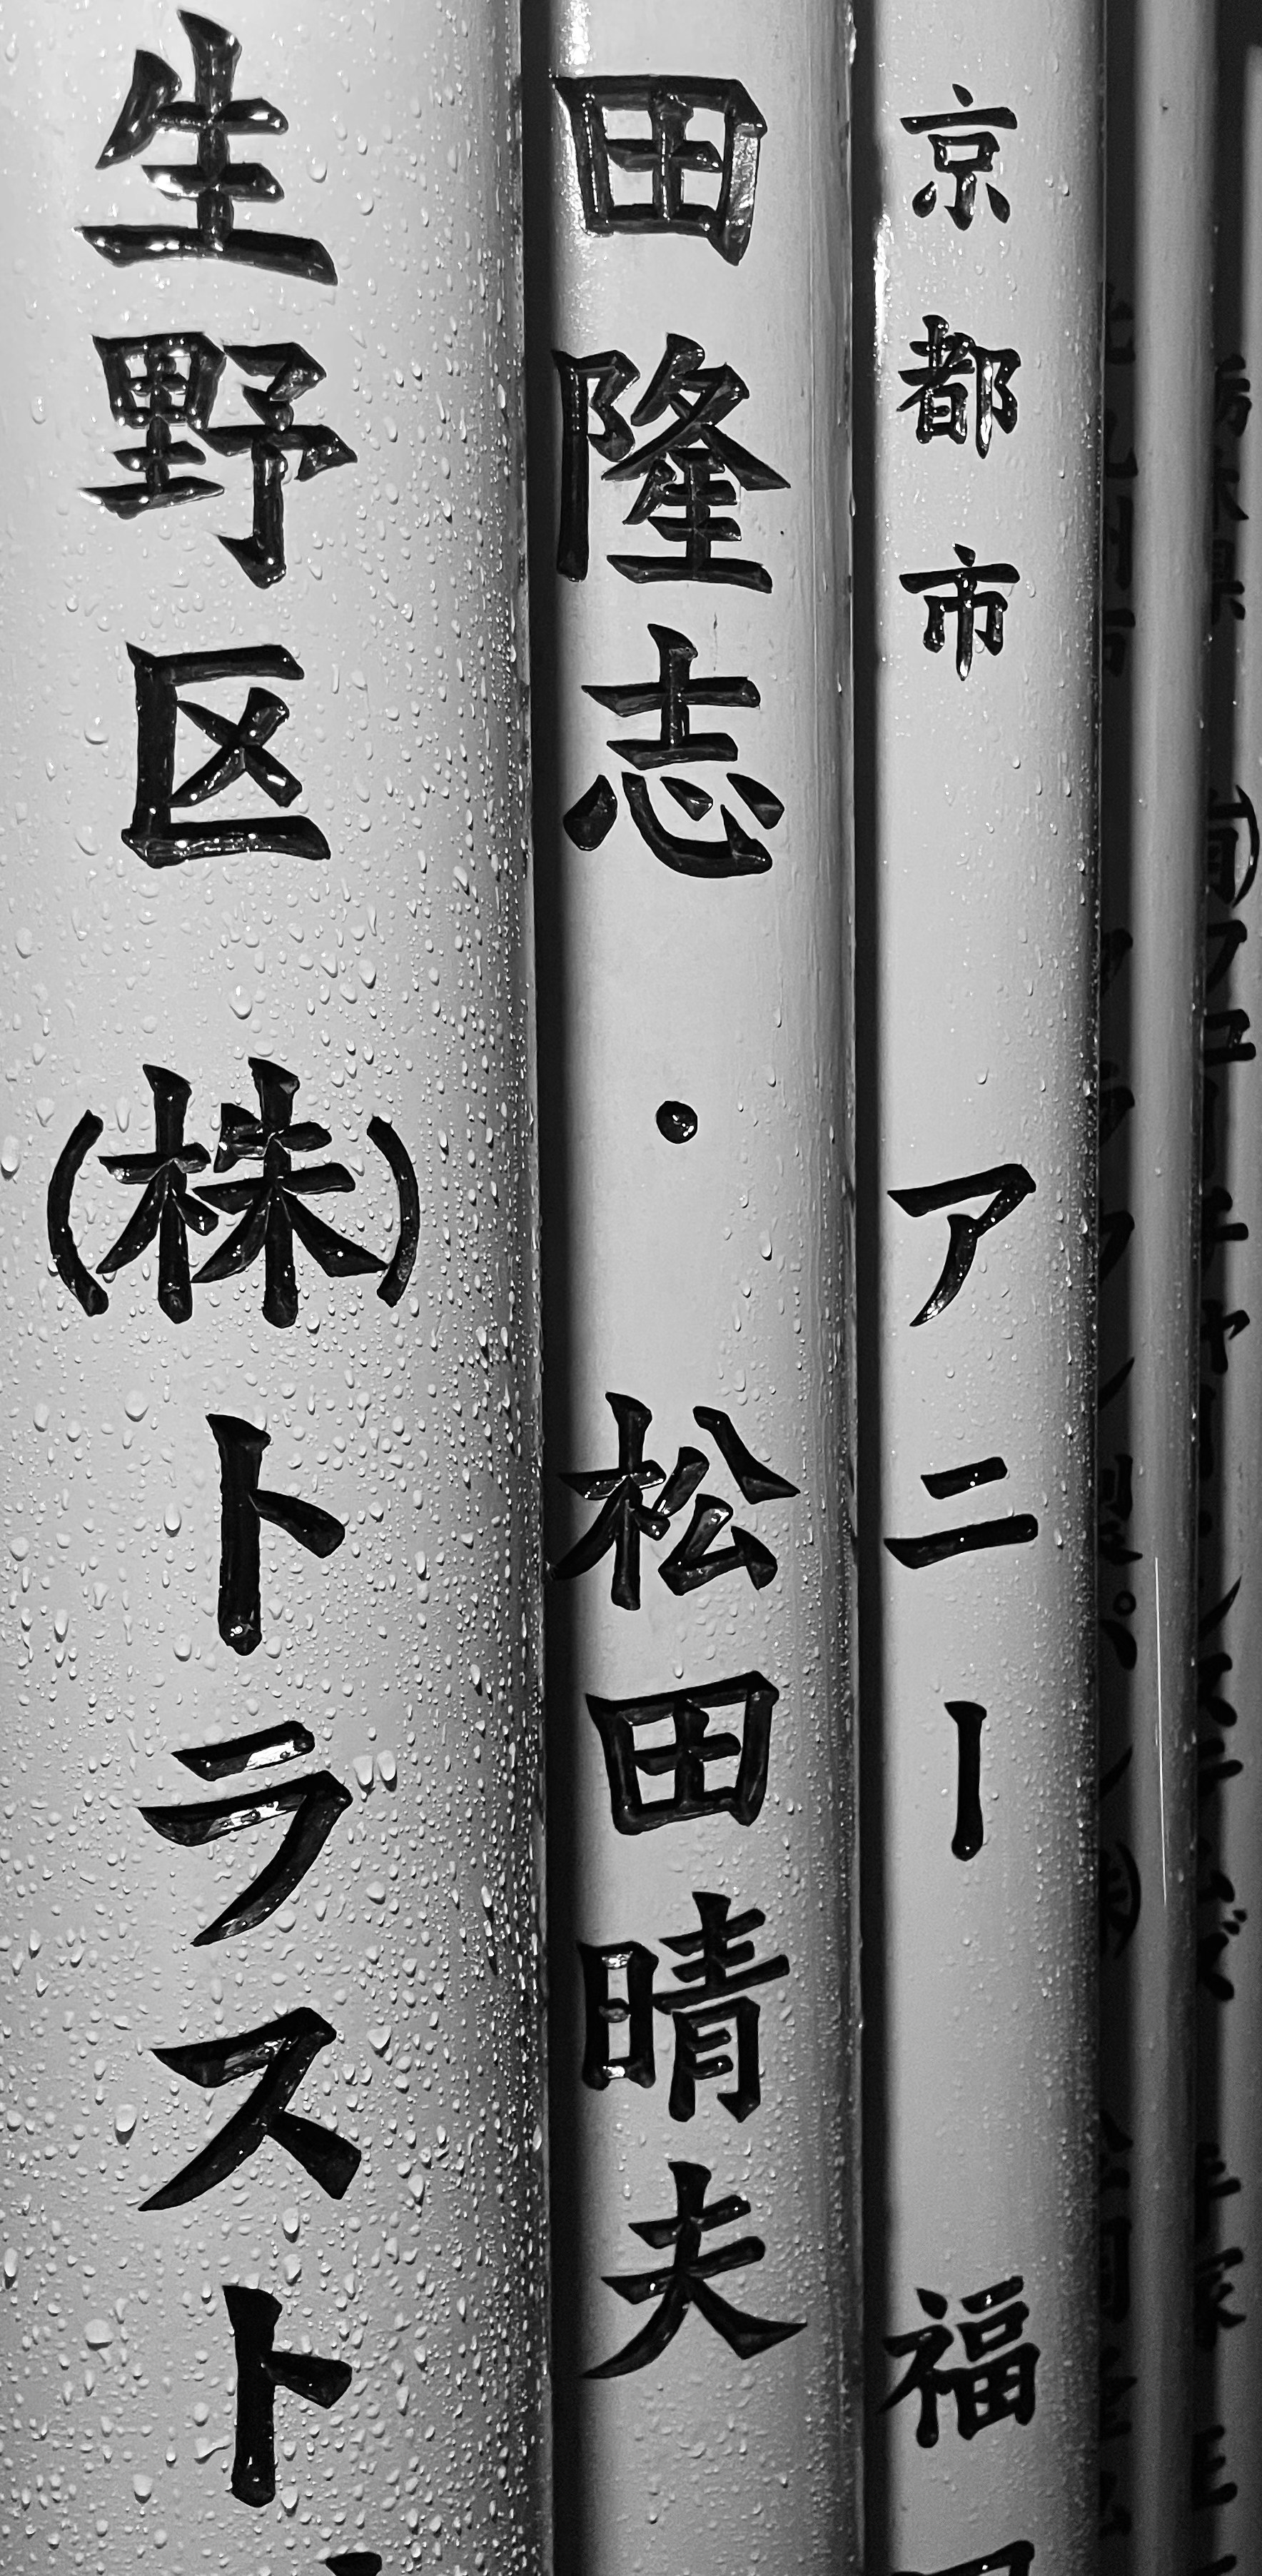 生野区 (株)トラスト
田隆志・松田晴夫
京都市 アニー 福